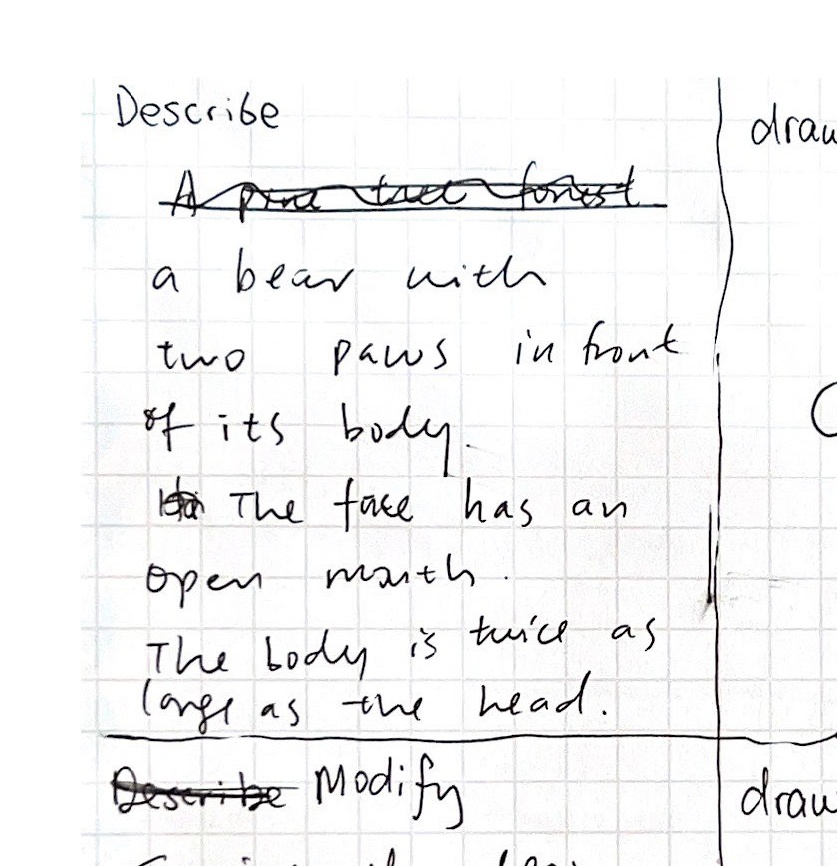 Describe
A pine tree forest
a bear with
two paws in front
of its body.
The face has an
open mouth.
The body is twice as
large as the head.
Describe Modify
draw
draw